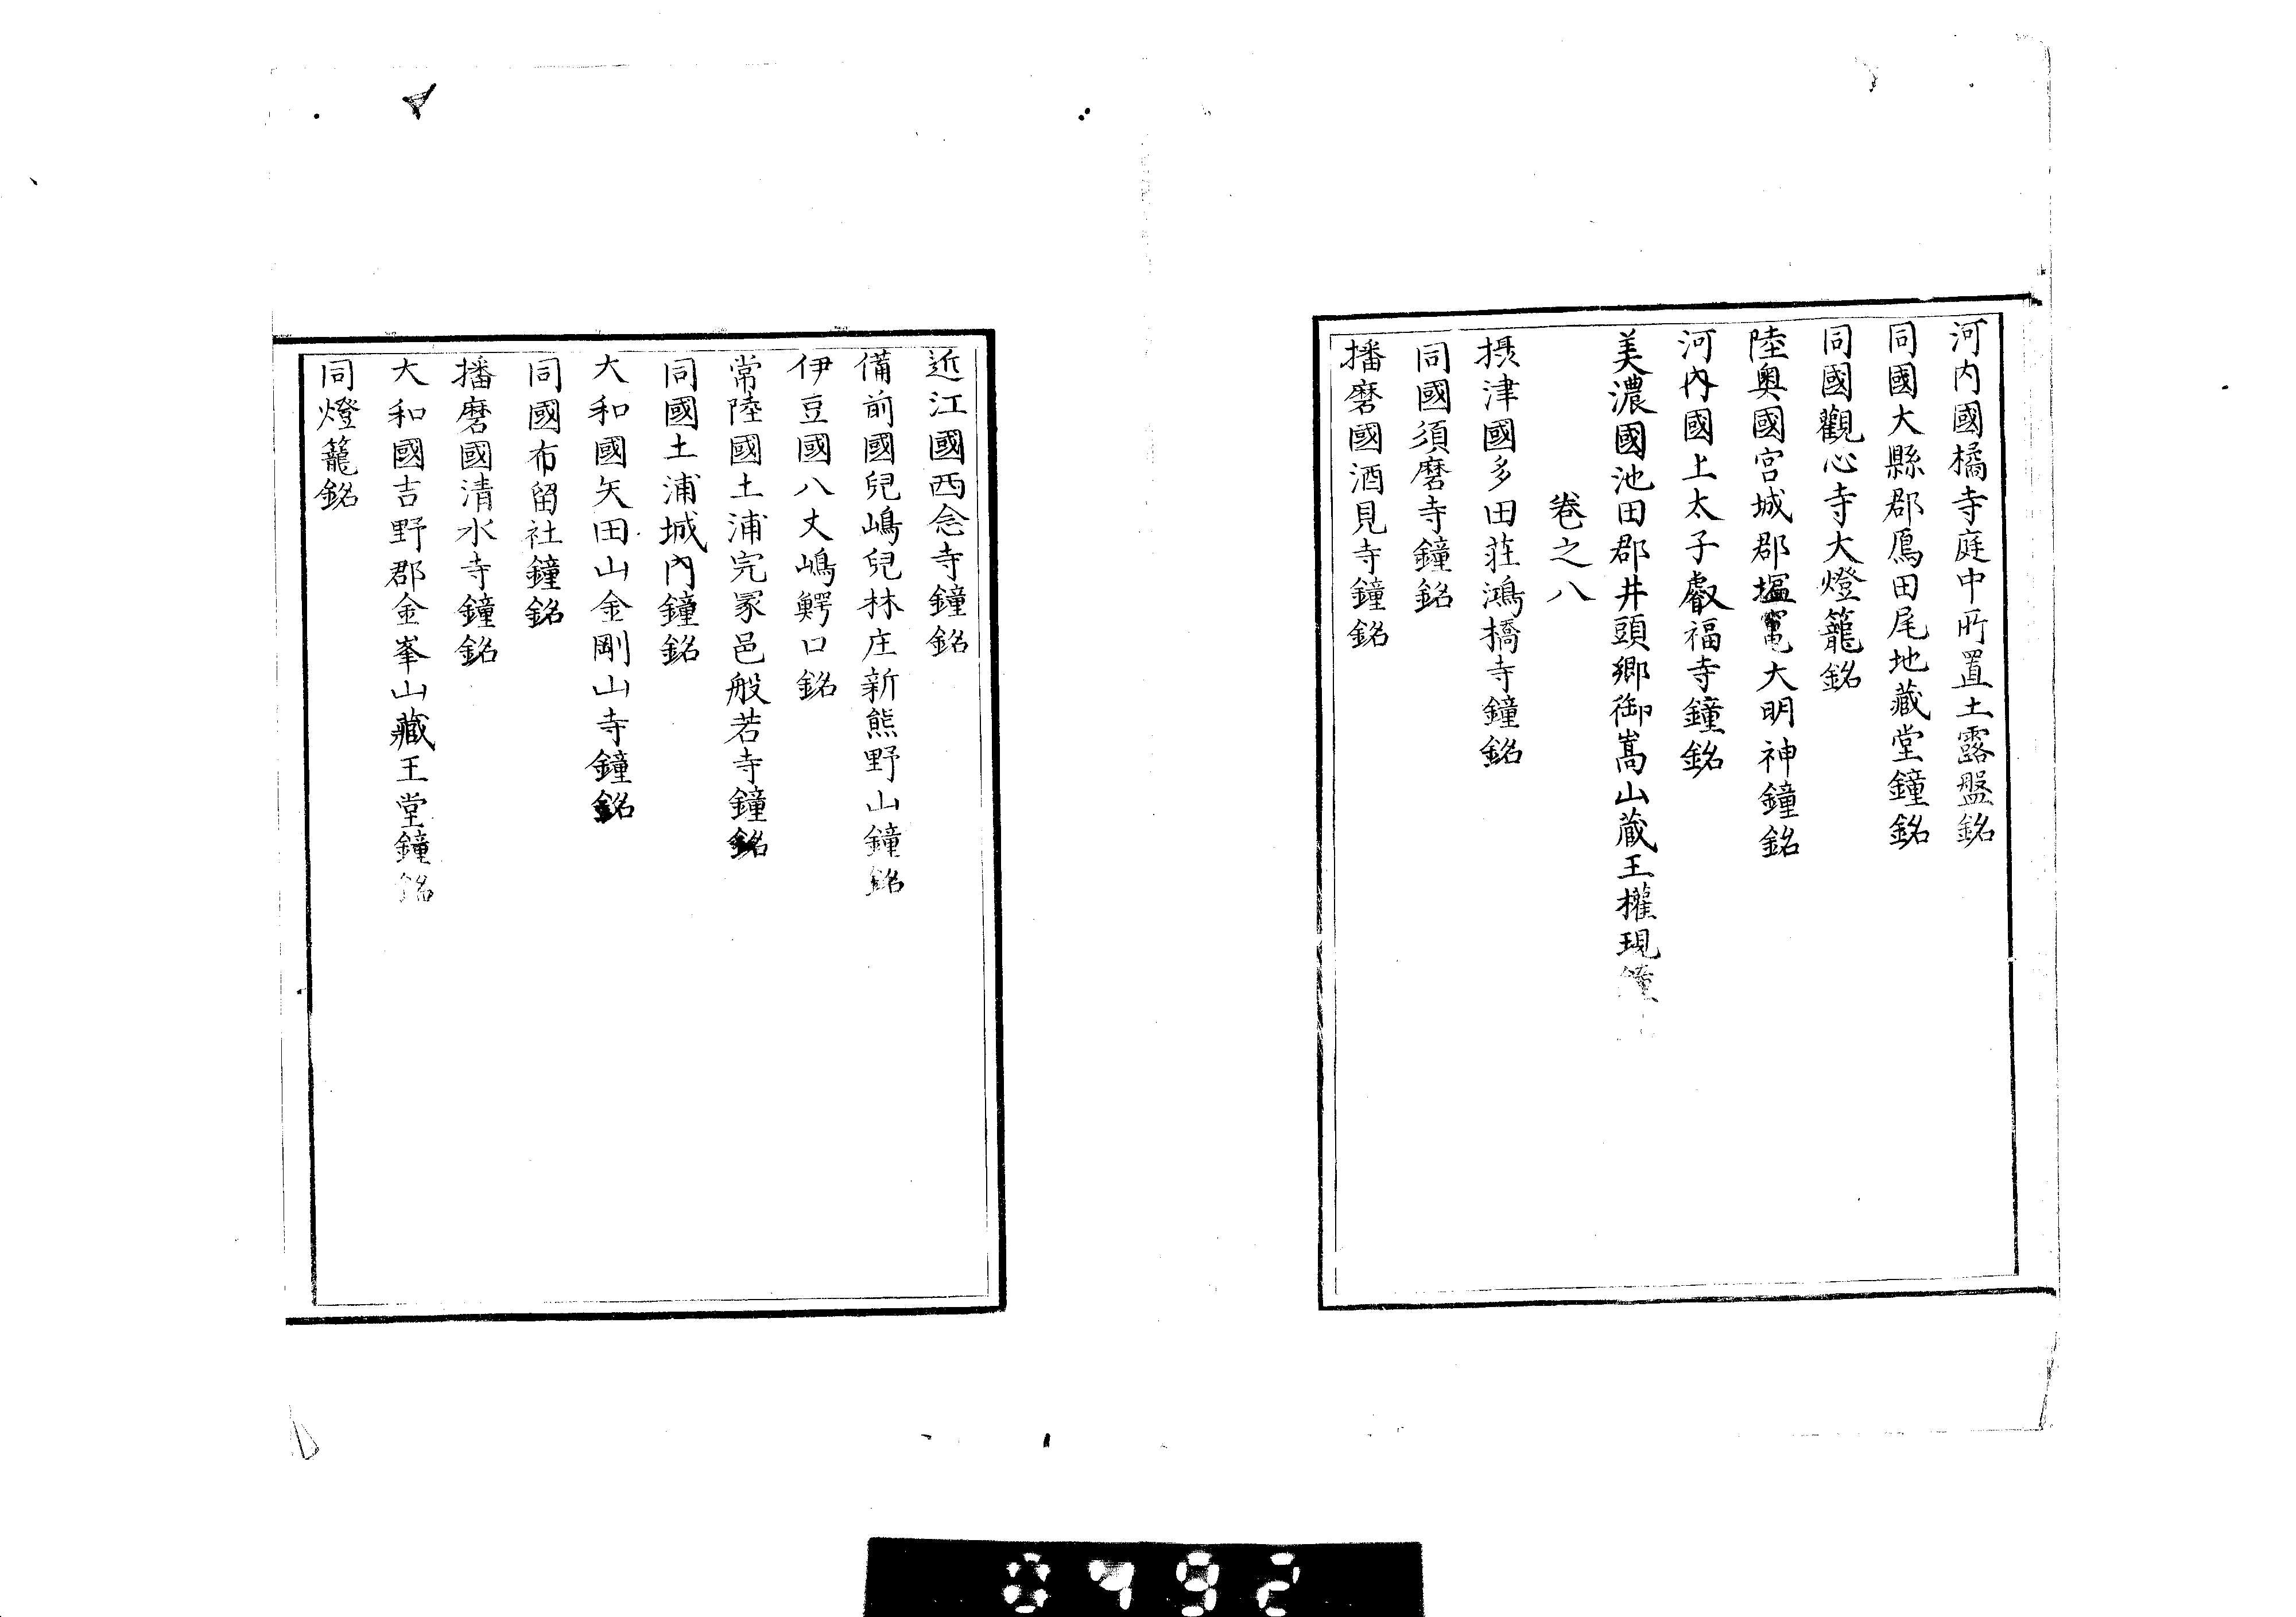 河内國橘寺庭中所置土露盤銘
同國大縣郡鴈田尾地蔵堂鐘銘
同國觀心寺大燈籠銘
陸奥國宮城郡塩竃大明神鐘銘
河内國上太子叡福寺鐘銘
美濃國池田郡井頭郷御嵩山蔵王權現鐘
卷之八
摂津國多田荘鴻橋寺鐘銘
同國須磨寺鐘銘
播磨國酒見寺鐘銘
近江國西念寺鐘銘
備前國兒嶋兒林庄新熊野山鐘銘
伊豆國八丈嶋鰐口銘
常陸國土浦完冢邑般若寺鐘銘
同國土浦城内鐘銘
大和國矢田山金剛山寺鐘銘
同國布留社鐘銘
播磨國清水寺鐘銘
大和國吉野郡金峯山藏王堂鐘銘
同燈籠銘
0792